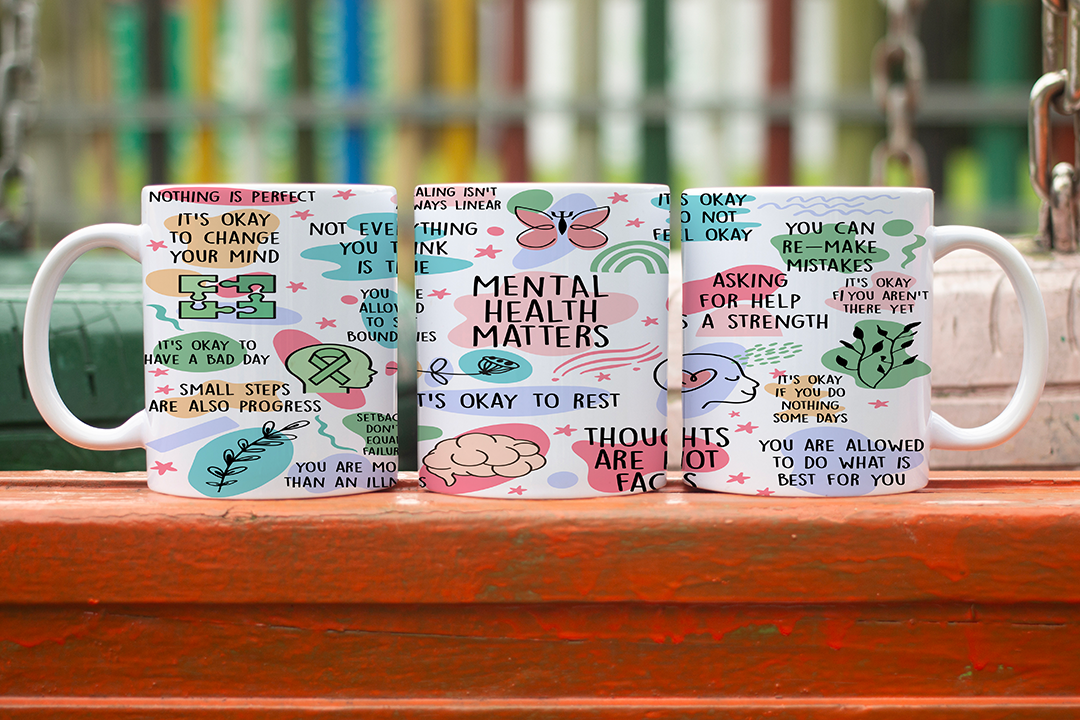 NOTHING IS PERFECT
IT'S OKAY
TO CHANGE
YOUR MIND
NOT EVERYTHING
YOU THINK
IS TRUE
YOU
ALLO
TO S
BOUND IES
IT'S OKAY TO
HAVE A BAD DAY
SMALL STEPS
ARE ALSO PROGRESS
SETBAC
DON'T
EQUA
FAILUR
YOU ARE MO
THAN AN ILLN
ALING ISN'T
WAYS LINEAR
MENTAL
HEALTH
MATTERS
IT'S OKAY TO REST
THOUGHTS
ARE NOT
FACTS
IT'S OKAY
TO NOT
FEEL OKAY
YOU CAN
RE—MAKE
MISTAKES
ASKING
FOR HELP
S A STRENGTH
IT'S OKAY
IF YOU AREN'T
THERE YET
IT'S OKAY
IF YOU DO
NOTHING
SOME DAYS
YOU ARE ALLOWED
TO DO WHAT IS
BEST FOR YOU